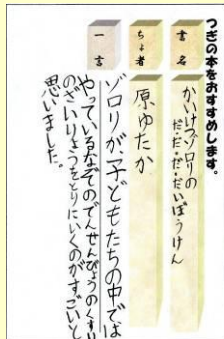 つぎの本をおすすめします。
書名
かいけつゾロリの
だ・だ・だ・だいぼうけん
ちょ者
原ゆたか
一言
ゾロリが、子どもたちの中では
やっているなぞのでんせんびょうのくすり
のざいりょうをとりにいくのがすごいと
思いました。